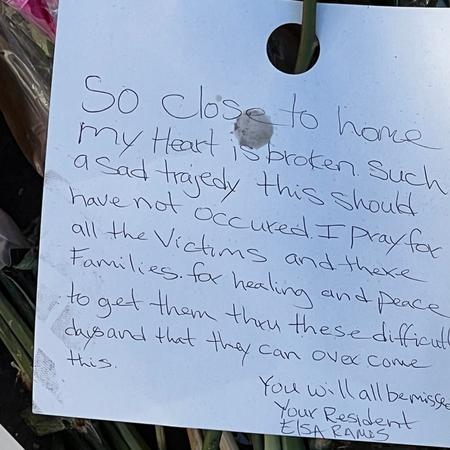 So close to home
my Heart is broken. Such
a sad trajedy this should
have not occured. I pray for
all the Victims and there
Families. for healing and peace
to get them thru these difficult
days and that they can over come
this.
You will all be missed
Your Resident
ElSA RAMOS